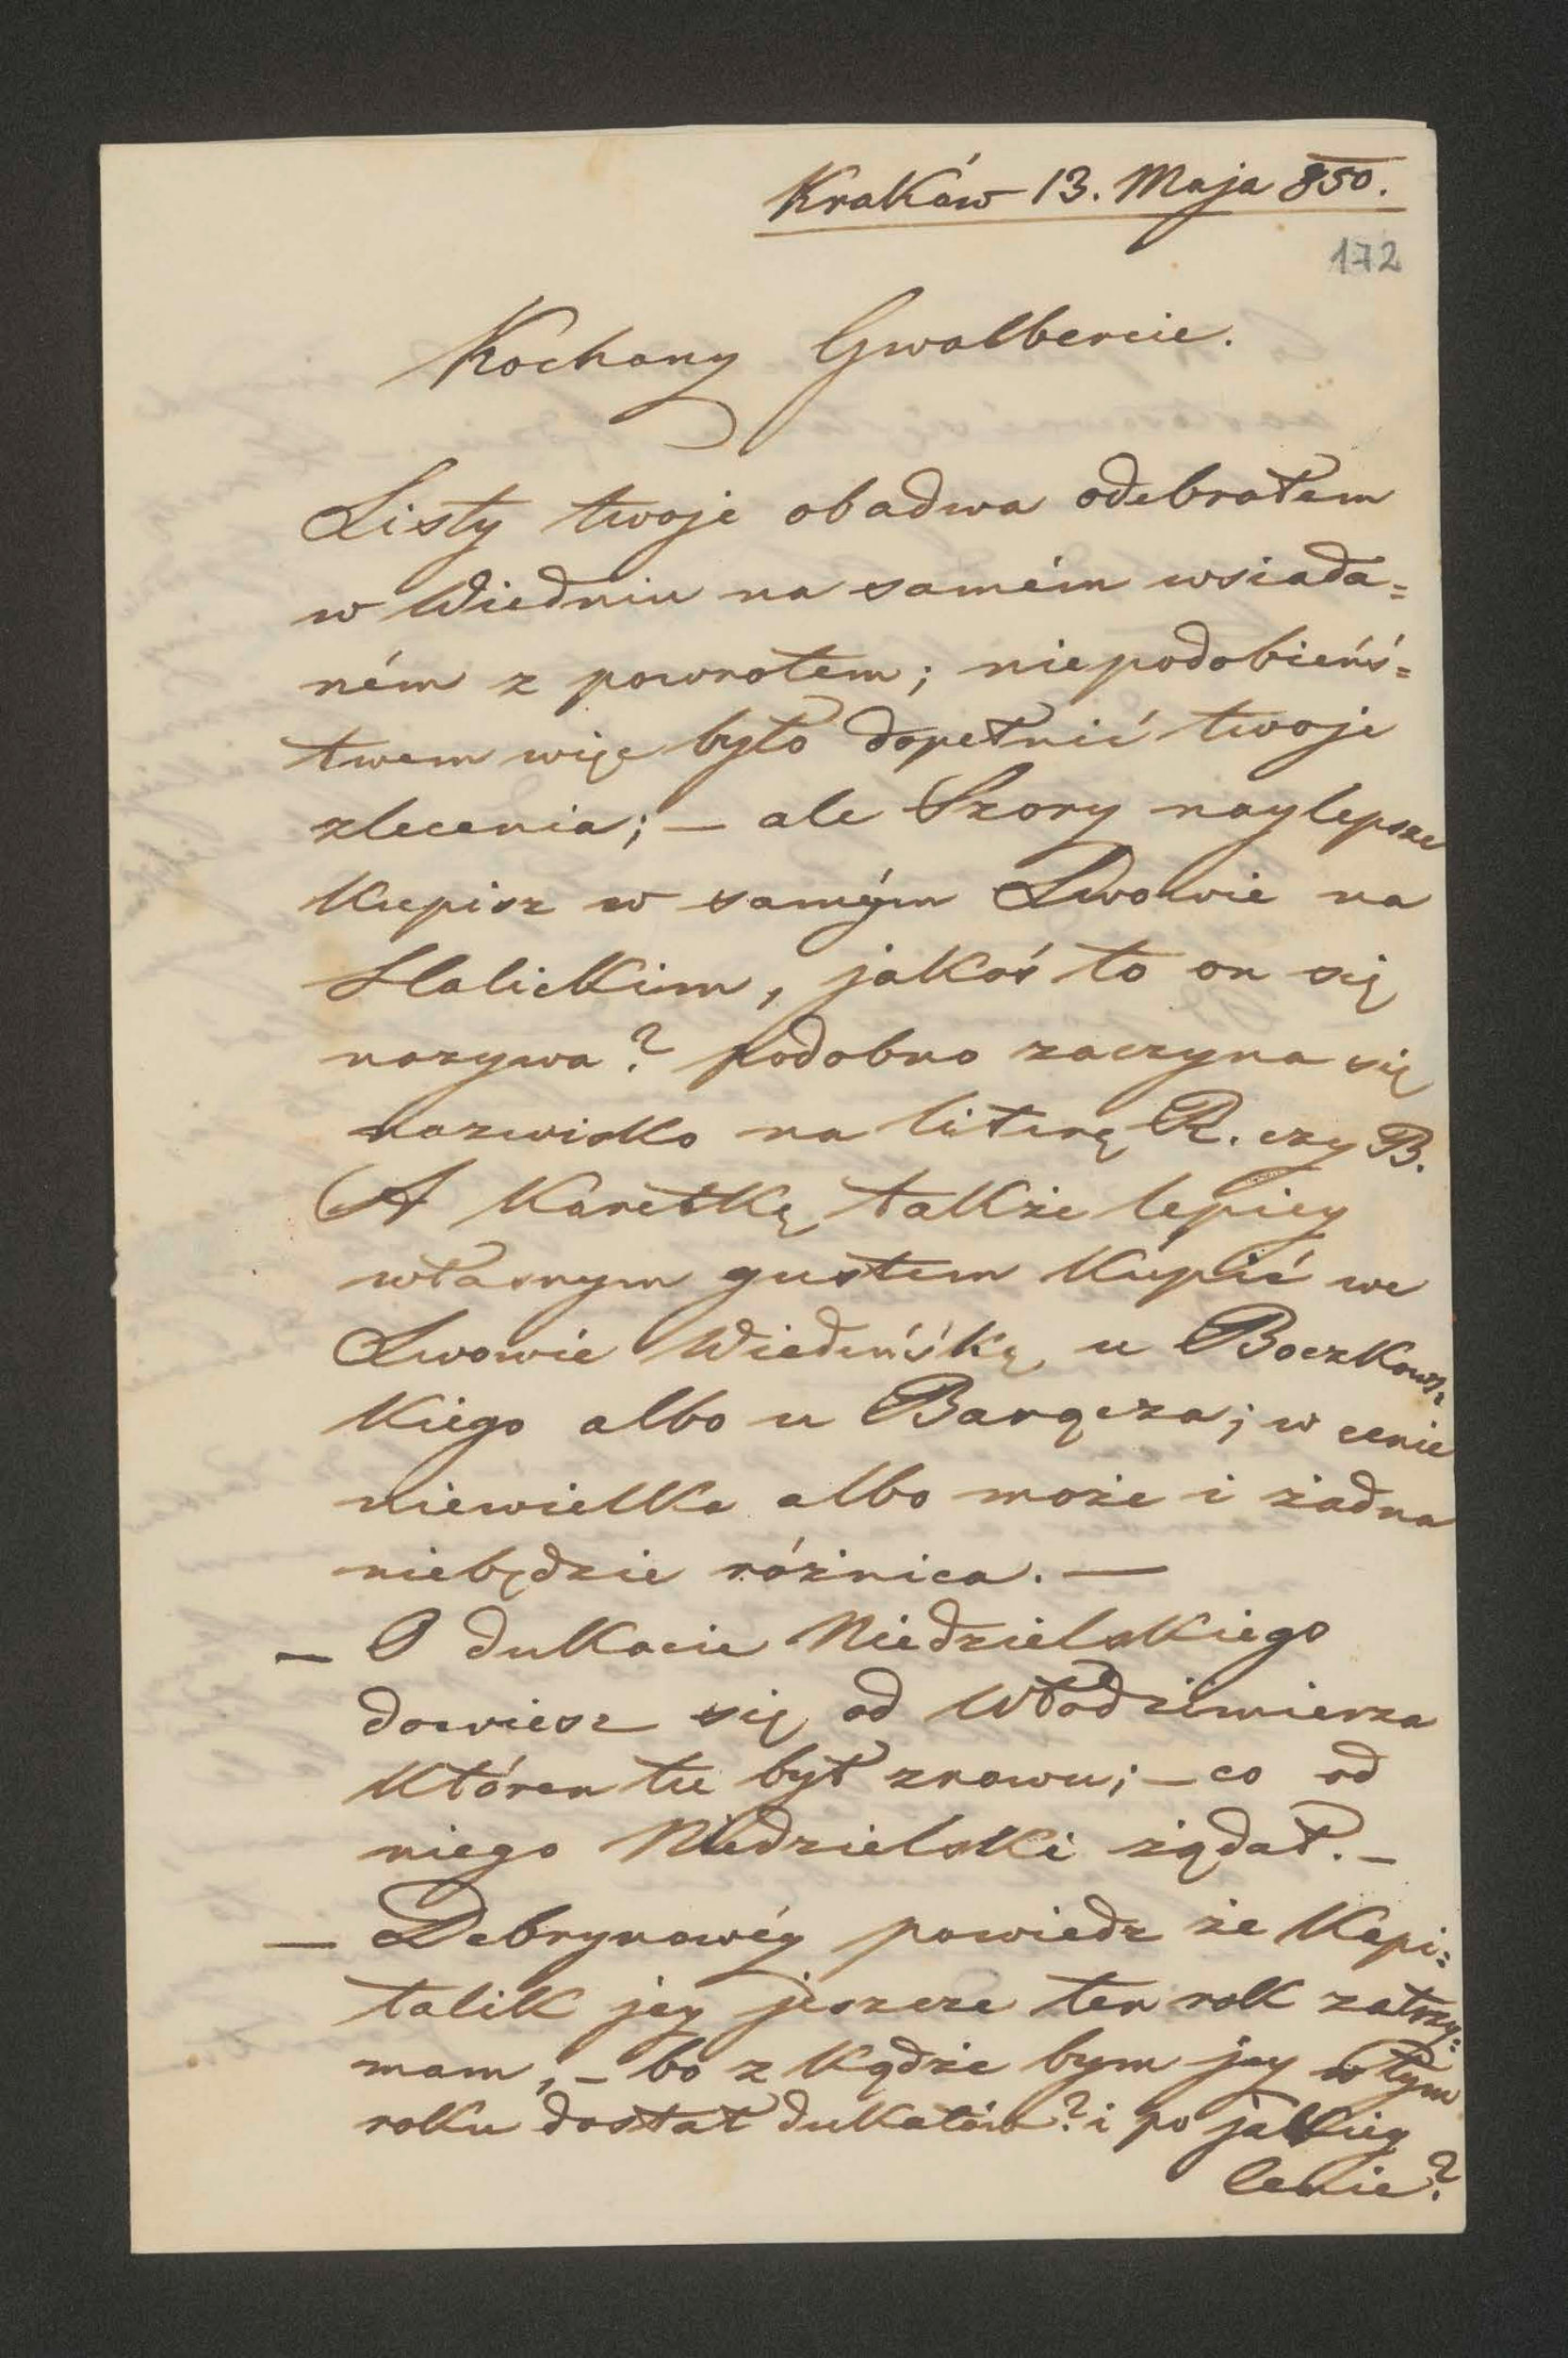 Kraków 13. Maja 850.
172
Kochany Gwalbercie.
Listy twoje obadwa odebrałem
w Wiedniu na samém wsiada=
ném z powrotem; niepodobieńś=
twem więc było dopełnić twoje
zlecenia; — ale Szory naylepsze
Kupisz w samym Lwowie na
Halickim, jakoś to on się
nazywa? podobno zaczyna się
nazwisko na literę R. czy B.
A Karetkę także lepiey
własnym gustem Kupić we
Lwowie Wiedeńśką u Boczkows=
Kiego albo u Barącza; w cenie
niewielka albo może i żadna
niebędzie różnica. —
— O dukacie Niedzielskiego
dowiesz się od Włodzimierza
Któren tu był znowu; — co od
niego Niedzielski żądał. —
— Debrynowéy powiedz że Kapi=
talik jey jeszcze ten rok zatrzy=
mam, — bo z kądże bym jey w tym
roku dostał dukatów? i po jakiey
cenie?